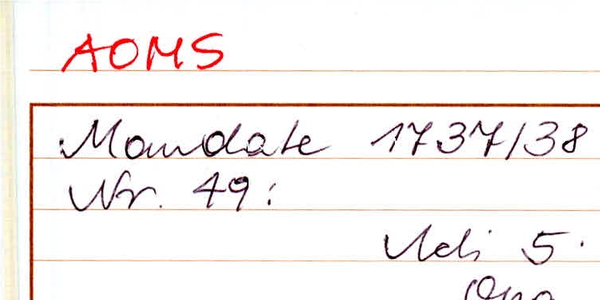 AOMS
Mandate 1737/38
Nr. 49:
5.